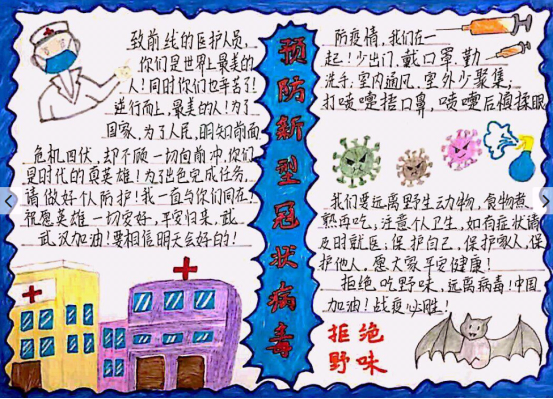 预防新型冠状病毒
致前线的医护人员，
你们是世界上最美的
人！同时你们也辛苦了！
逆行而上，最美的人！为了
国家，为了人民，明知前面
危机四伏，却不顾一切向前冲，你们
是时代的真英雄！为了出色完成任务，
请做好个人防护！我一直与你们同在！
祝愿英雄一切安好，平安归来，武
武汉加油！要相信明天会好的！
防疫情，我们在一
起！少出门，戴口罩，勤
洗手，室内通风，室外少聚集；
打喷嚏捂口鼻，喷嚏后慎揉眼
我们要远离野生动物，食物煮
熟再吃；注意个人卫生，如有症状请
及时就医；保护自己，保护家人，保
护他人，愿大家平安健康！
拒绝吃野味，远离病毒！中国
加油！战疫必胜！
拒绝
野味